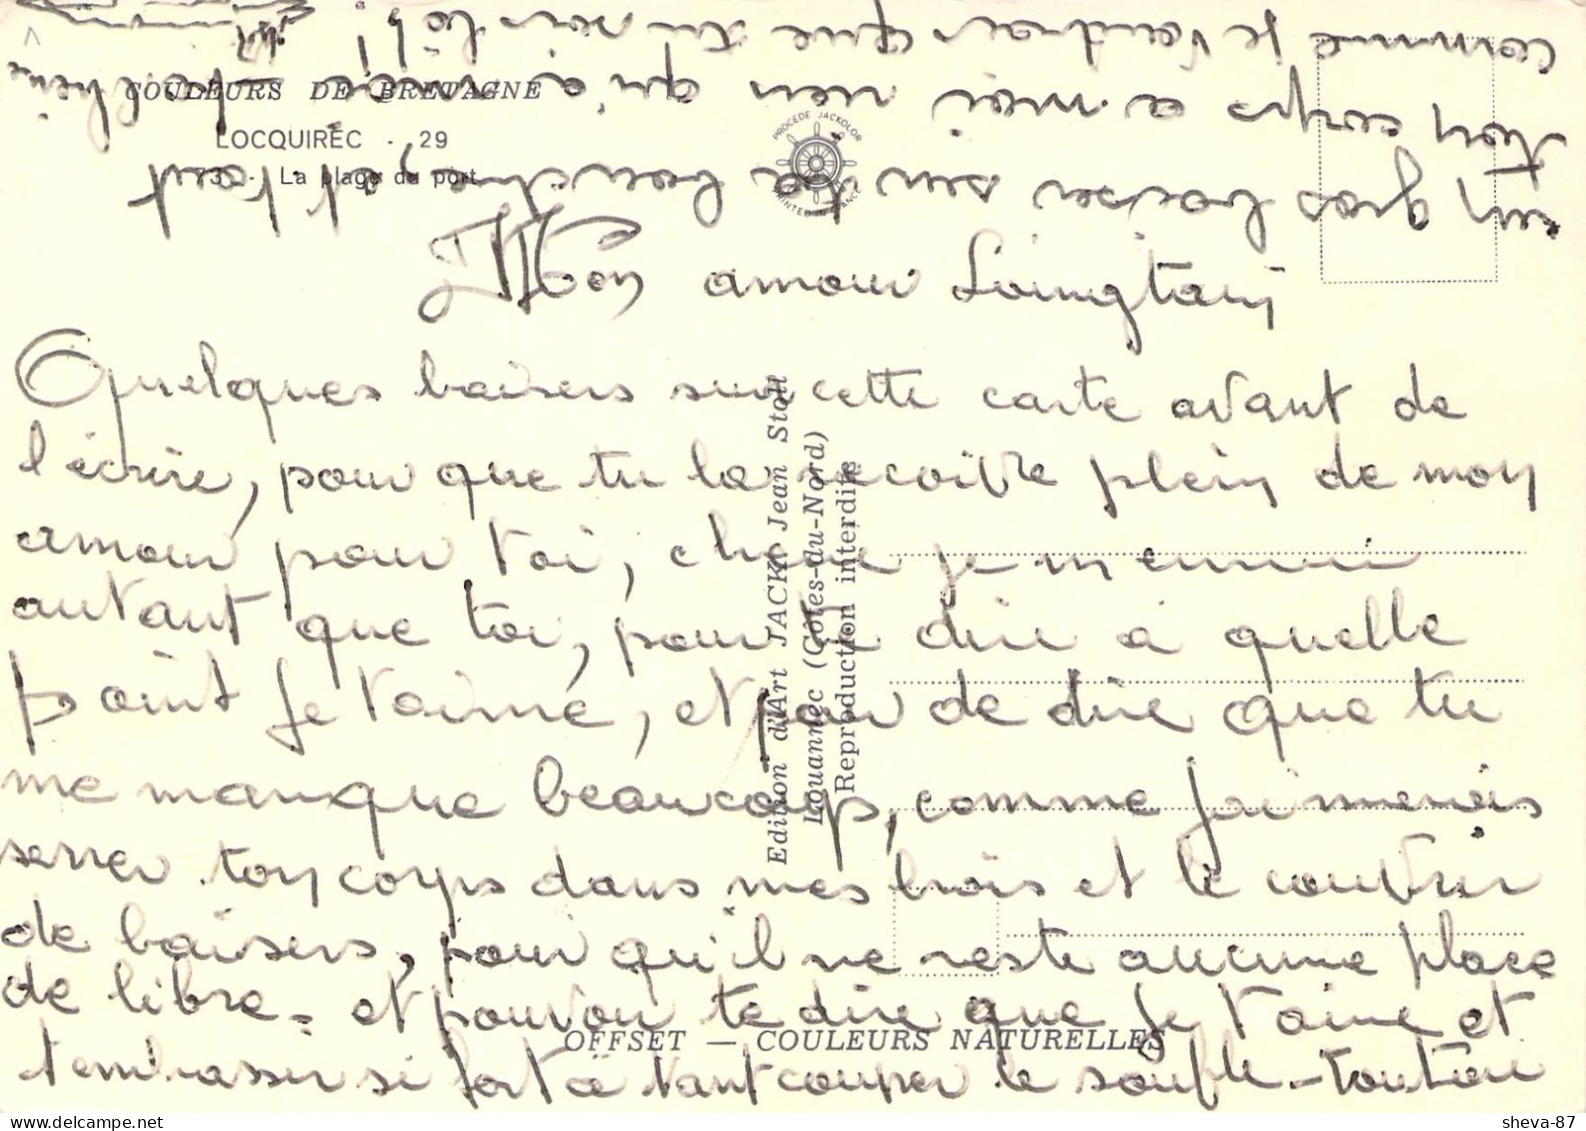 COULEURS DE BRETAGNE
LOCQUIREC - 29
73 - La plage du port
PROCEDE JACKOLOR
PRINTED IN FRANCE
Mon amour Loingtain
Quelques baisers sur cette carte avant de
l'écrire, pour que tu la recoive plein de mon
amour pour toi, je m'ennui
autant que toi, pour te dire à quelle
point je t'aime, et pour de dire que tu
me manque beaucoup, comme j'aimerais
serrer ton corps dans mes brais et le couvrir
de baisers, pour qu'il ne reste aucune place
de libre. et pouvoir te dire que je t'aime et
t'embrasser si fort à tant couper le souffle -
un gros baiser sur ta bouche, et tout
ton corps a moi rien qu'à
comme je voudrais que tu sois là!
Edition d'Art JACK Jean Stoll
Louannec (Côtes-du-Nord)
Reproduction interdite
OFFSET — COULEURS NATURELLES
sheva-87